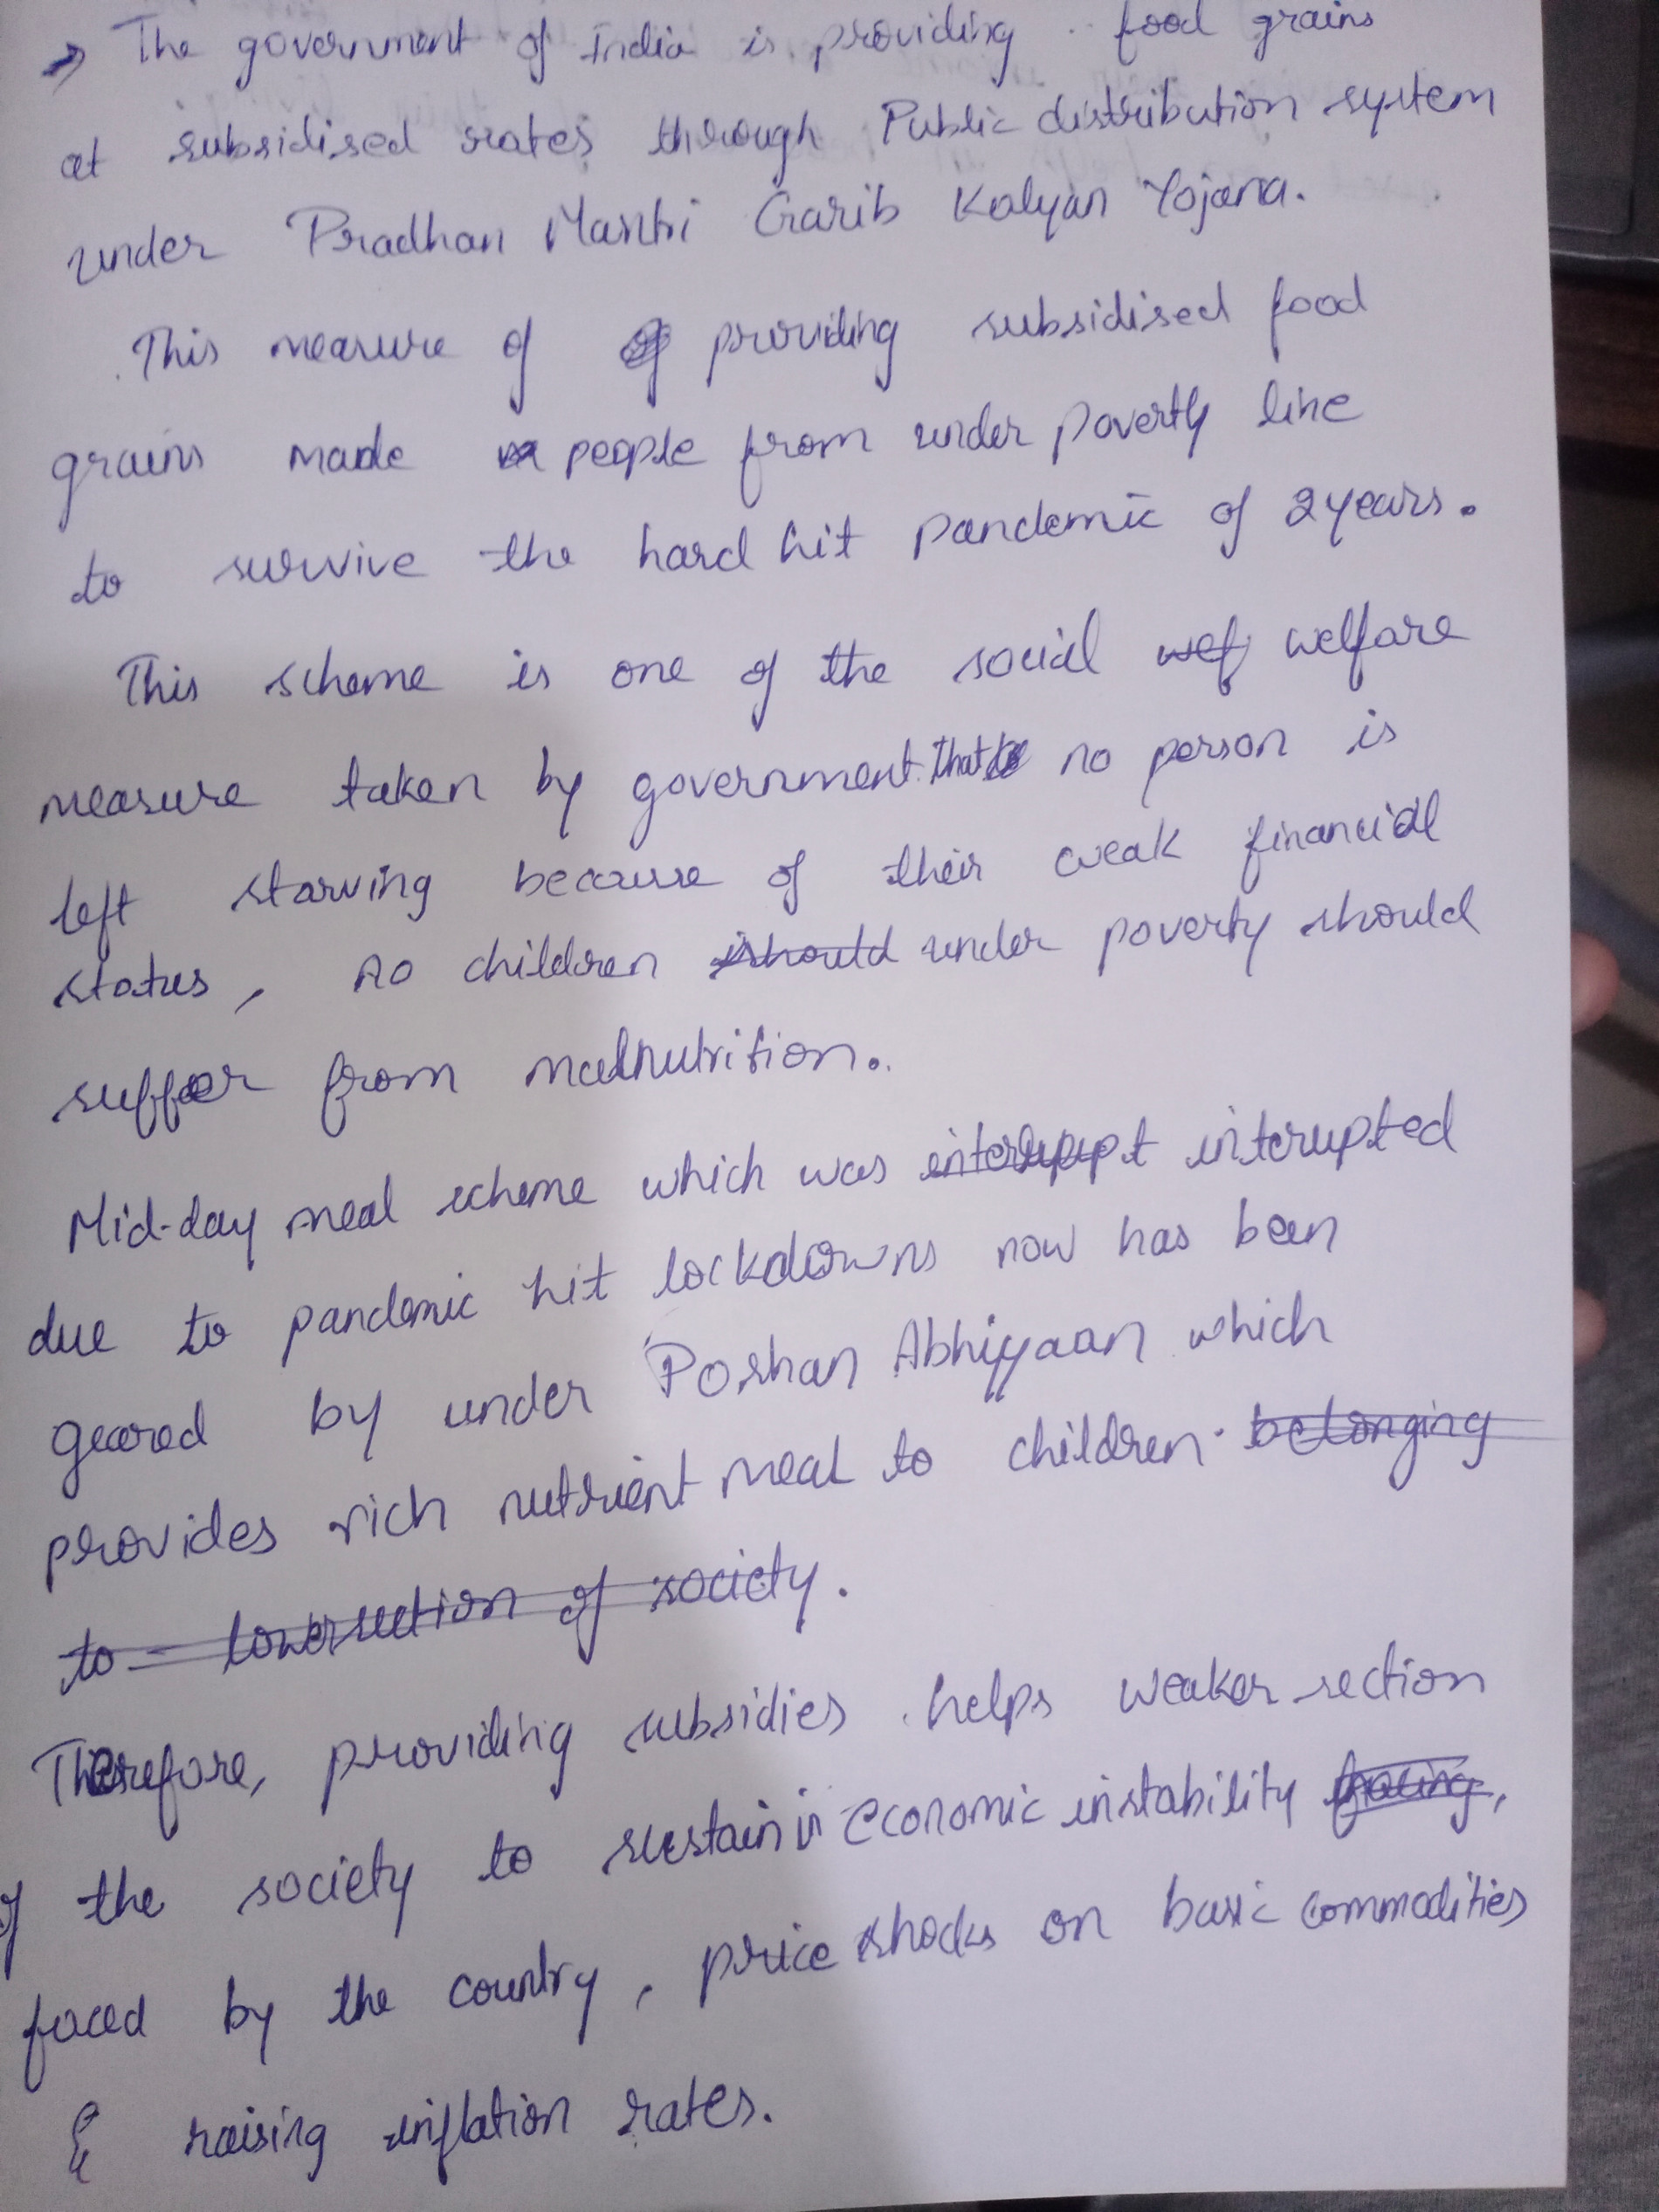 → The government of India is providing food grains
at subsidised rates through Public distribution system
under Pradhan Mantri Garib Kalyan Yojana.
This measure of providing subsidised food
grains made people from under poverty line
to survive the hard hit pandemic of 2 years.
This scheme is one of the social wef welfare
measure taken by government that no person is
left starving because of their weak financial
status, no children should under poverty should
suffer from malnutrition.
Mid-day meal scheme which was interupted
due to pandemic hit lockdowns now has been
geared by under Poshan Abhiyaan which
provides rich nutrient meal to children. belonging
to lower section of society.
Therefore, providing subsidies helps weaker section
of the society to sustain in economic instability facing,
faced by the country, price shocks on basic commodities
& raising inflation rates.